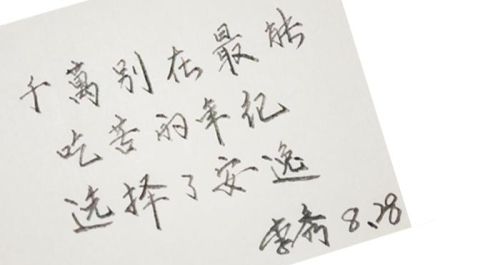 千萬别在最能
吃苦的年纪
选择了安逸
李秀 8.28